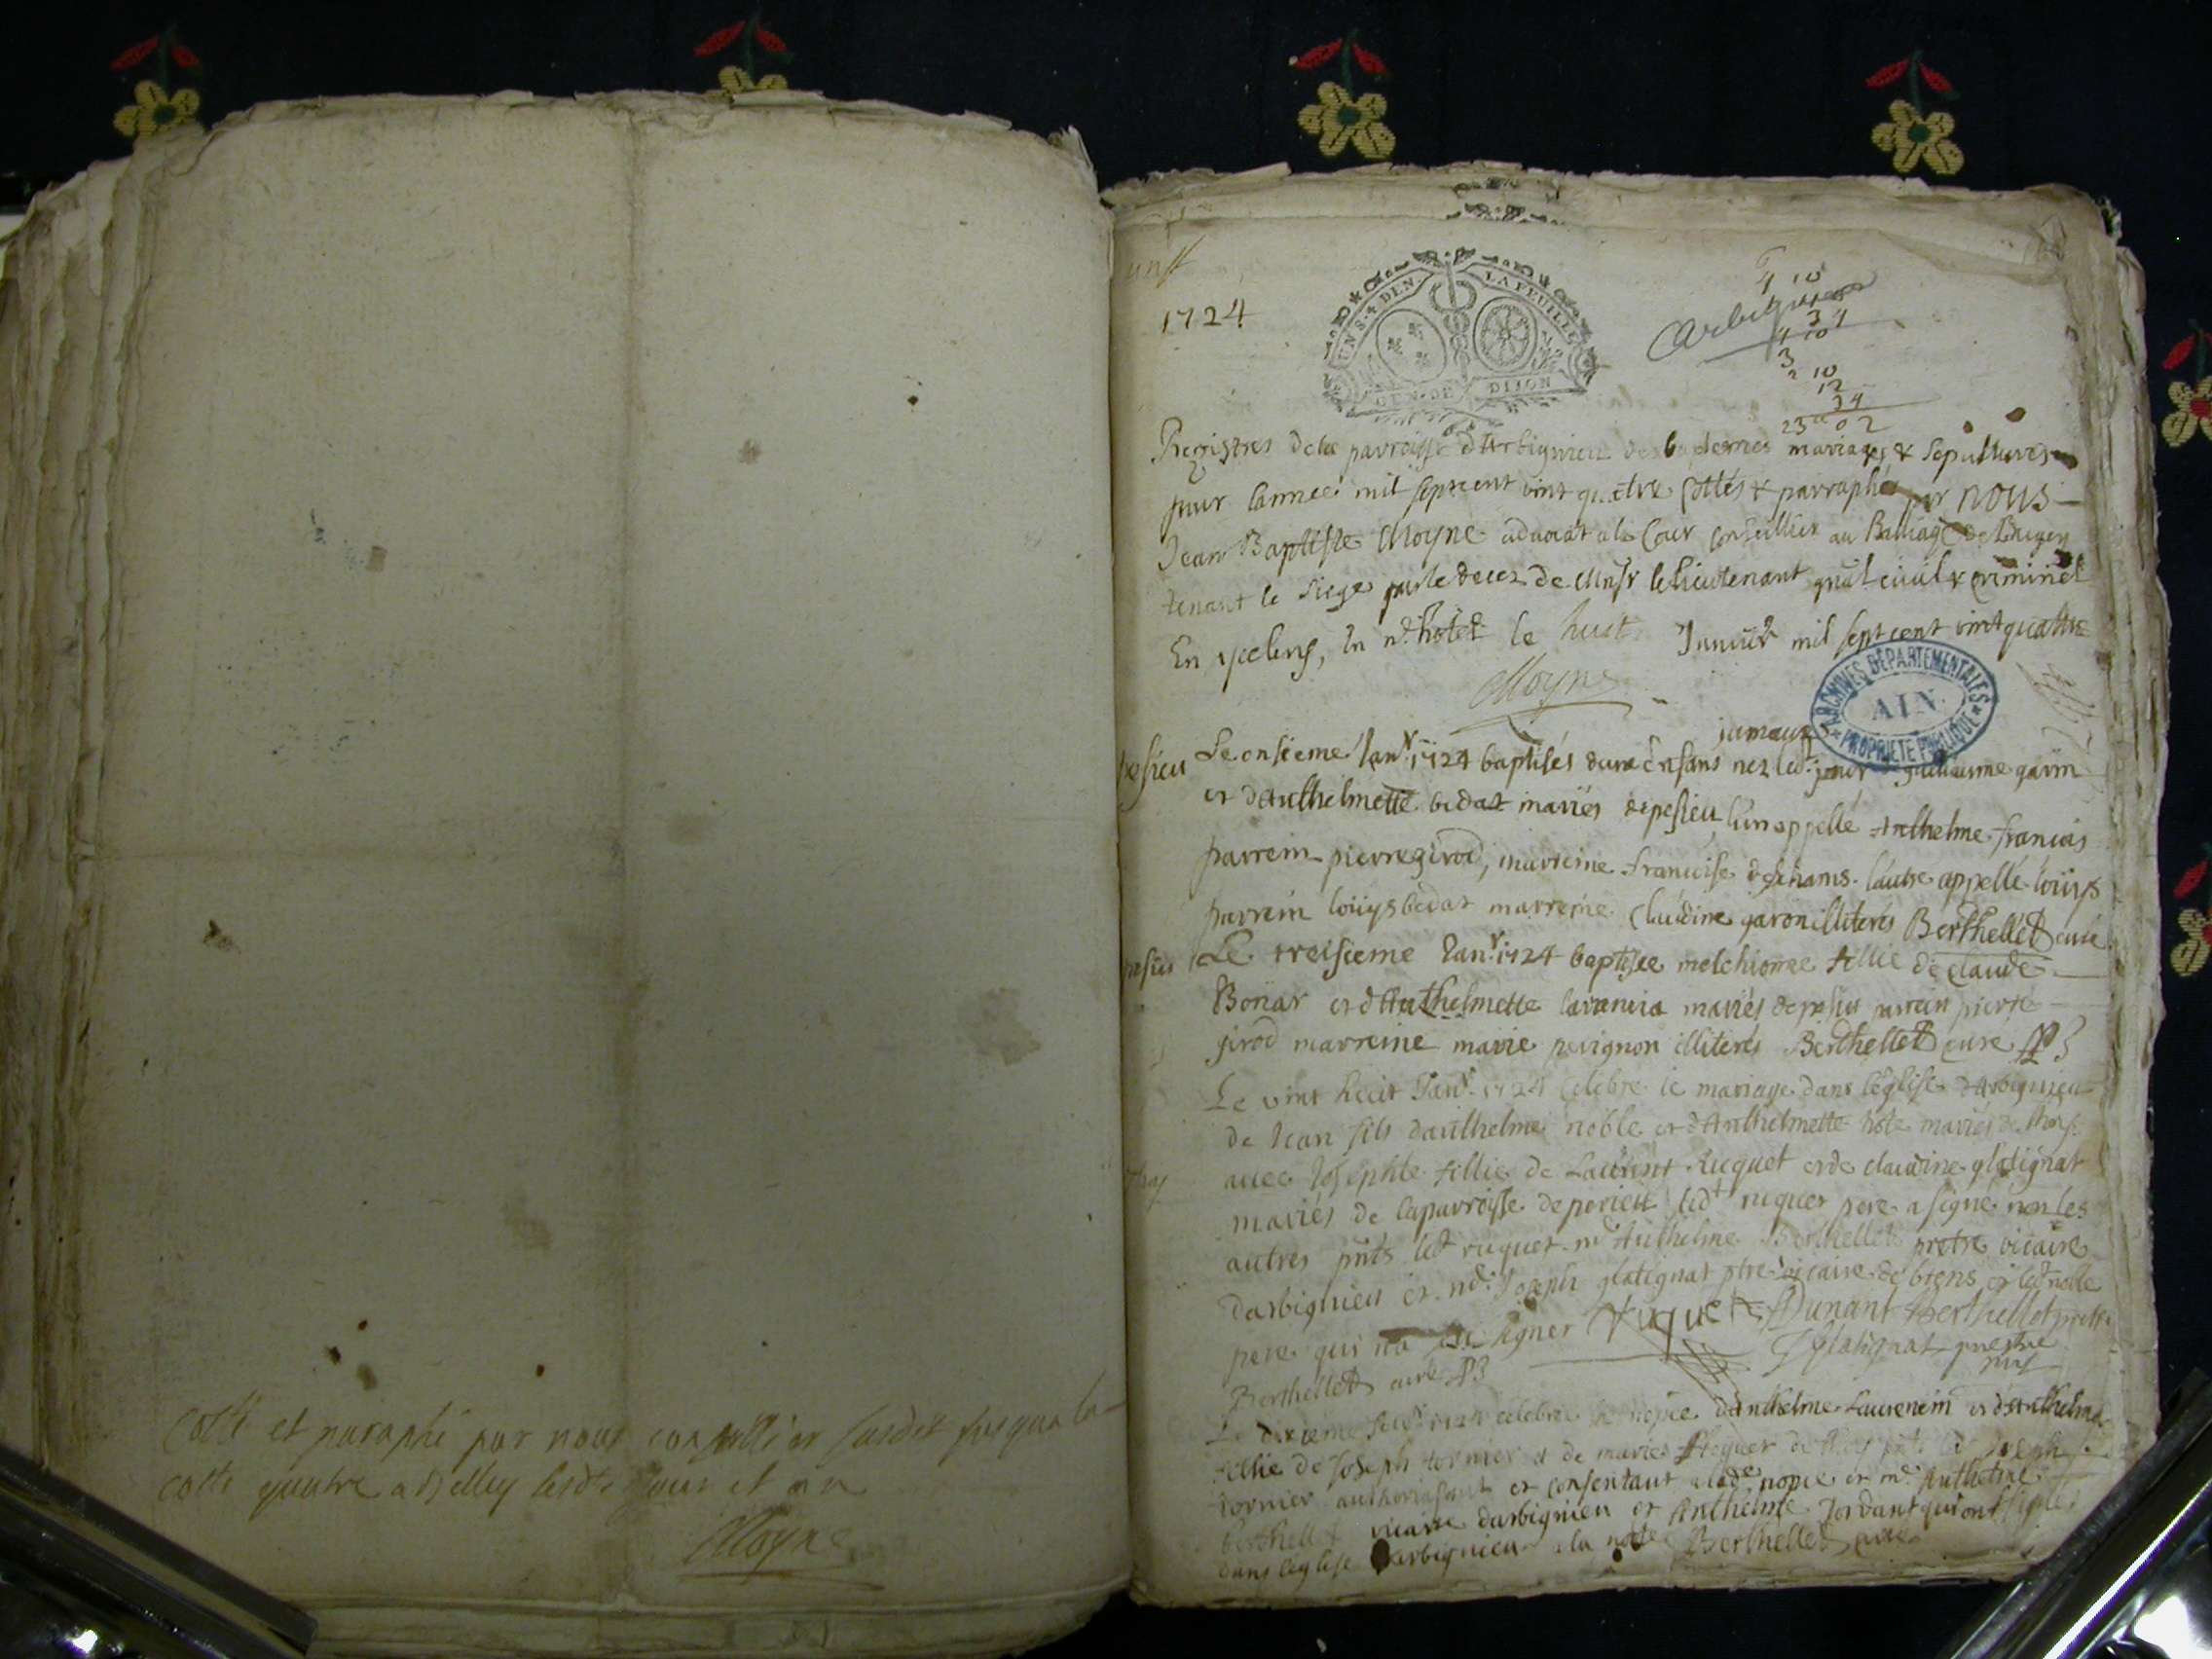 Cotté et paraphé par nous conseillier susdit jusqua la
cotte quatre a Belley lesdts jour et an
Moyne
1724
UN S. 4 DEN. LA FEUILLE
GEN. DE DIJON
Arbignieu
4 10
3 4
4 10
3
2 10
12
34
23 0 2
Registres de la parroisse d'Arbignieu des baptemes mariages & sepultures
pour lannée mil septcent vint quatre cottés & parraphés par nous
Jean Baptiste Moyne advocat ala Cour Conseillier au Balliage de Bugey
tenant le siege par le deces de Monsr le lieutenant gnal civil & criminel
En yceluy, en n. hotel le huit Janvier mil sept cent vint quattre
Moyne
ARCHIVES DÉPARTEMENTALES
AIN
PROPRIÉTÉ PUBLIQUE
jumeaux
pesieu Le onsieme Janr 1724 baptisés deux enfans nez led. jour guillaume garin
et d'Anthelmette bedat mariés de pesieu lun appellé Anthelme francois
parrein pierre girod, marreine francoise deschams. l'autre appellé loüys
parrein loüys bedat marreine Claudine garon illiterés Berthellet curé
pesieu Le treisieme Janr 1724 baptisee melchionne fillie de claude
Bonar et d'Anthelmette lavancia mariés de pesieu parrein pierre
girod marreine marie pevignon illiterés Berthellet curé
Le vint huit Janr 1724 celebre le mariage dans l'église d'Arbignieu
de Jean fils d'anthelme noble et d'Anthelmette hote mariés de thoy
thoy avec Josephte fillie de Laurent ruquet et de claudine glatignat
mariés de laparroisse de perieu led ruquet pere a signe non les
autres pnts led ruquet mr Anthelme Berthellet pretre vicaire
darbignieu et mr Joseph glatignat ptre vicaire de brens et led noble
pere qui na sçu signer Ruquet Dunant Berthellet prettre
Berthellet curé J glatignat prestre
Le dixieme fevr 1724 celebré la nopce d'Anthelme Laurencin et d'Anthelme
fillie de Joseph tornier et de marie de thoy pnts led Joseph
tornier authorisant et consentant a lade nopce et mr Anthelme
berthellet vicaire darbignieu et Anthelme Jordant qui ont signés
dans leglise darbignieu a la note Berthellet curé